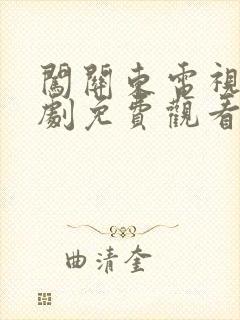 闖關東電視
劇免費觀看
曲清奎